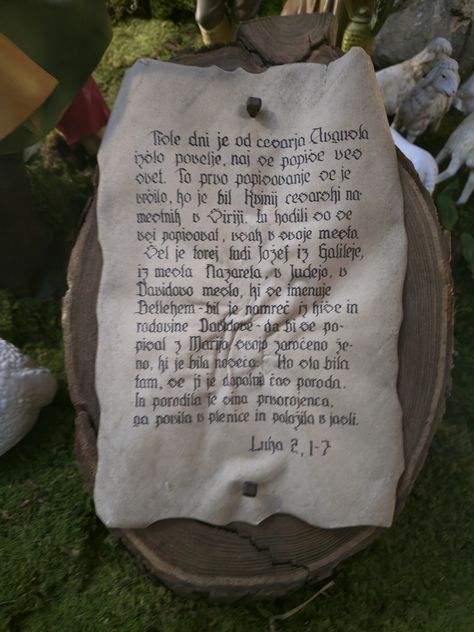 Tiste dni je od cesarja Avgusta
izšlo povelje, naj se popiše ves
svet. To prvo popisovanje se je
vršilo, ko je bil Kvirinij cesarski na-
mestnik v Siriji. In hodili so se
vsi popisovat, vsak v svoje mesto.
Šel je torej tudi Jožef iz Galileje,
iz mesta Nazareta, v Judejo, v
Davidovo mesto, ki se imenuje
Betlehem - bil je namreč iz hiše in
rodovine Davidove - da bi se po-
pisal z Marijo, svojo zaročeno že-
no, ki je bila noseča. Ko sta bila
tam, se ji je dopolnil čas poroda.
In porodila je sina prvorojenca,
ga povila v plenice in položila v jasli.
Luka 2, 1-7